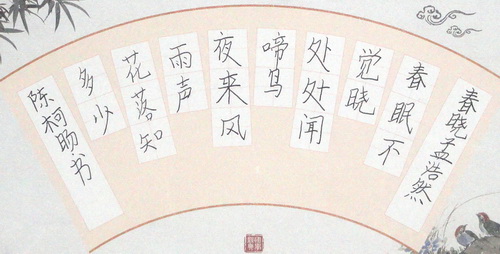 春晓孟浩然
春眠不
觉晓
处处闻
啼鸟
夜来风
雨声
花落知
多少
陈柯旸书